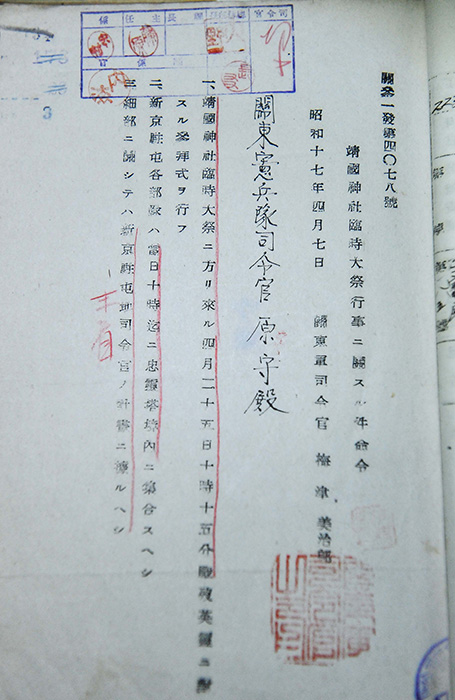 關參一發第四〇七八號
靖國神社臨時大祭行事ニ關スル件命令
昭和十七年四月七日
關東軍司令官 梅津美治郎
關東憲兵隊司令官 原守殿
一、靖國神社臨時大祭ニ方リ來ル四月二十五日十時十五分殉英靈ニ對
スル參拜式ヲ行フ
二、新京駐屯各部隊ハ當日十時迄ニ忠靈塔境內ニ集合スヘシ
三、細部ニ關シテハ新京駐屯地司令官ノ計畫ニ據ルヘシ
司令官
長
主任
係
官
3